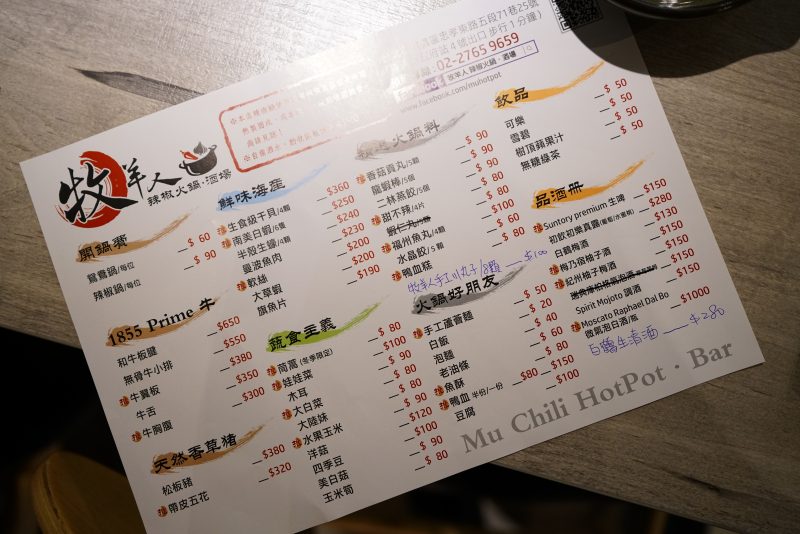 牧羊人
辣椒火鍋·酒場
忠孝東路五段71巷25號
站4號出口步行1分鐘)
02-2765 9659
牧羊人 辣椒火鍋·酒場
www.facebook.com/muhotpot
開鍋費
鴛鴦鍋/每位 $ 60
辣椒鍋/每位 $ 90
1855 Prime 牛
和牛板腱 $650
無骨牛小排 $550
推 牛翼板 $380
牛舌 $350
推 牛胸腹 $300
天然香草豬
松板豬 $380
推 帶皮五花 $320
鮮味海產
推 生食級干貝/4顆 $360
推 南美白蝦/6隻 $250
半殼生蠔/4顆 $240
曼波魚肉 $230
推 軟絲 $200
大草蝦 $200
旗魚片 $190
蔬食主義
推 茼蒿(冬季限定) $ 80
推 娃娃菜 $100
木耳 $ 80
推 大白菜 $ 90
大陸妹 $ 90
推 水果玉米 $120
洋菇 $100
四季豆 $ 90
美白菇 $ 90
玉米筍 $ 80
火鍋料
推 香菇貢丸/5顆 $ 90
龍蝦棒/5個 $ 90
二林燕餃/5個 $ 90
推 甜不辣/4片 $ 90
蝦仁丸/5顆 $100
推 福州魚丸/4顆 $ 80
水晶餃/5顆 $ 60
推 鴨血糕 $ 80
牧羊人手工川丸子/8顆 — $100
火鍋好朋友
推 手工蘆薈麵 $ 50
白飯 $ 20
泡麵 $ 40
老油條 $ 50
推 魚酥 $ 50
推 鴨血 半份/一份 $80 $150
豆腐 $100
飲品
可樂 $ 50
雪碧 $ 50
樹頂蘋果汁 $ 50
無糖綠茶 $ 50
品酒冊
推 Suntory premium 生啤 $150
初飲初樂真露(葡萄/水蜜桃) $280
白鶴梅酒 $130
推 梅乃宿柚子酒 $150
推 紀州柚子梅酒 $150
Spirit Mojoto 調酒 $150
推 Moscato Raphael Dal Bo
微氣泡白酒/瓶 $1000
白鶴生清酒 — $280
Mu Chili HotPot · Bar